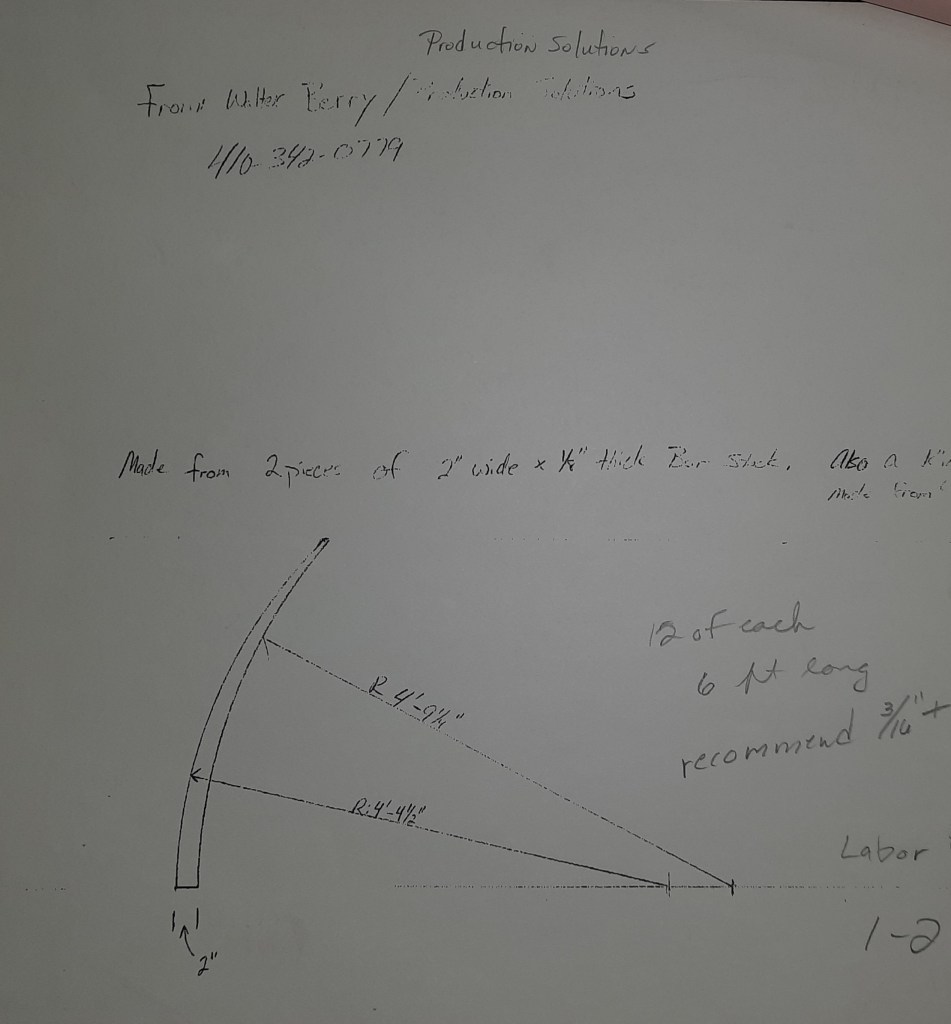 Production Solutions
From Walter Berry / Production Solutions
410-342-0779
Made from 2 pieces of 2" wide x 1/8" thick Bar Stock. Also a
Made from
12 of each
6 ft long
recommend 3/16" +
R 4'-9¼"
R: 4'-4½"
Labor
1-2
2"